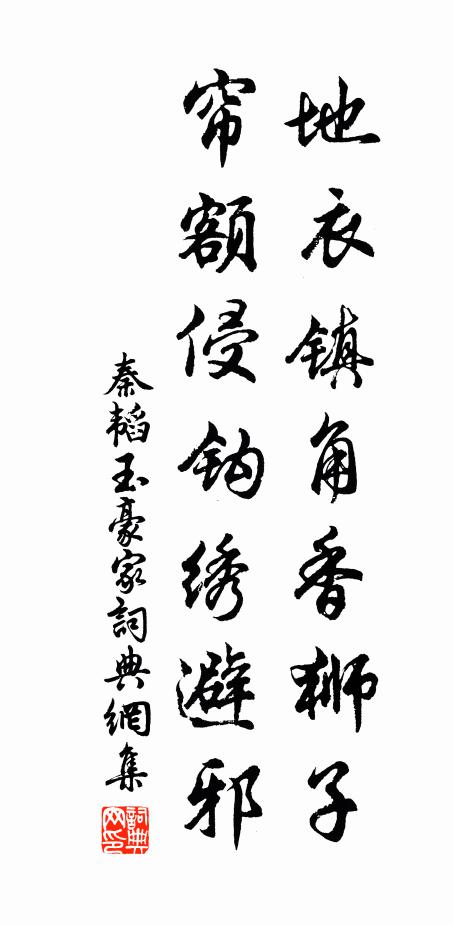 地衣镇角香狮子
帘额侵钩绣避邪
秦韬玉豪家詞典網集
詞典网印